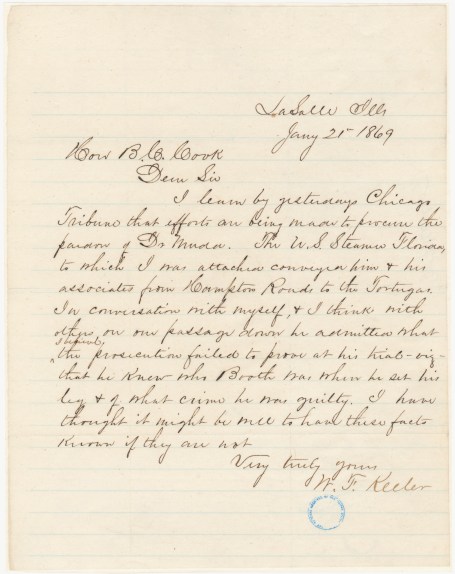 LaSalle Ills
Jany 21 1869
Hon B. C. Cook
Dear Sir
I learn by yesterdays Chicago
Tribune that efforts are being made to procure the
pardon of Dr Mudd. The U.S. Steamer Florida,
to which I was attached conveyed him & his
associates from Hampton Roads to the Tortugas.
In conversation with myself, & I think with
others, on our passage down he admitted what
the prosecution failed to prove at his trial - viz -
that he knew who Booth was when he set his
leg & of what crime he was guilty. I have
thought it might be well to have these facts
known if they are not
Very truly yours
W. F. Keeler